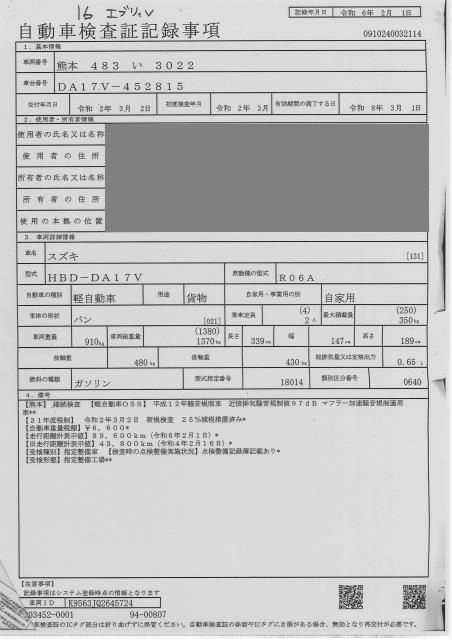 16 エブリィV
記録年月日 令和 6年 2月 1日
自動車検査証記録事項
0910240032114
1. 基本情報
車両番号 熊本 483 い 3022
車台番号 DA17V-452815
交付年月日 令和 2年 3月 2日 初度検査年月 令和 2年 3月 有効期間の満了する日 令和 8年 3月 1日
2. 使用者・所有者情報
使用者の氏名又は名称
使用者の住所
所有者の氏名又は名称
所有者の住所
使用の本拠の位置
3. 車両詳細情報
車名 スズキ [131]
型式 HBD-DA17V 原動機の型式 R06A
自動車の種別 軽自動車 用途 貨物 自家用・事業用の別 自家用
車体の形状 バン [021] 乗車定員 (4) 2人 最大積載量 (250) 350kg
車両重量 910kg 車両総重量 (1380) 1370kg 長さ 339cm 幅 147cm 高さ 189cm
前軸重 480kg 後軸重 430kg 総排気量又は定格出力 0.65 L
燃料の種類 ガソリン 型式指定番号 18014 類別区分番号 0640
4. 備考
【熊本】,継続検査 【軽自動車OSS】 平成12年騒音規制車 近接排気騒音規制値97dB マフラー加速騒音規制適用
車**
【31年度税制】 令和2年3月2日 新規検査 25%減税措置済み*
【自動車重量税額】¥6,600*
【走行距離計表示値】89,600km(令和6年2月1日)*
【旧走行距離計表示値】43,800km(令和4年2月16日)*
【受検種別】指定整備車 【検査時の点検整備実施状況】点検整備記録簿記載あり*
【受検形態】指定整備工場**
【注意事項】
記録事項はシステム登録時点の情報となります
車両ID K9563JQ2645724
03452-0001 94-00807
車検査証のICタグ部分は折り曲げずに保管ください。自動車検査証の券面やICタグにき損がある場合、無効となり再交付が必要です。